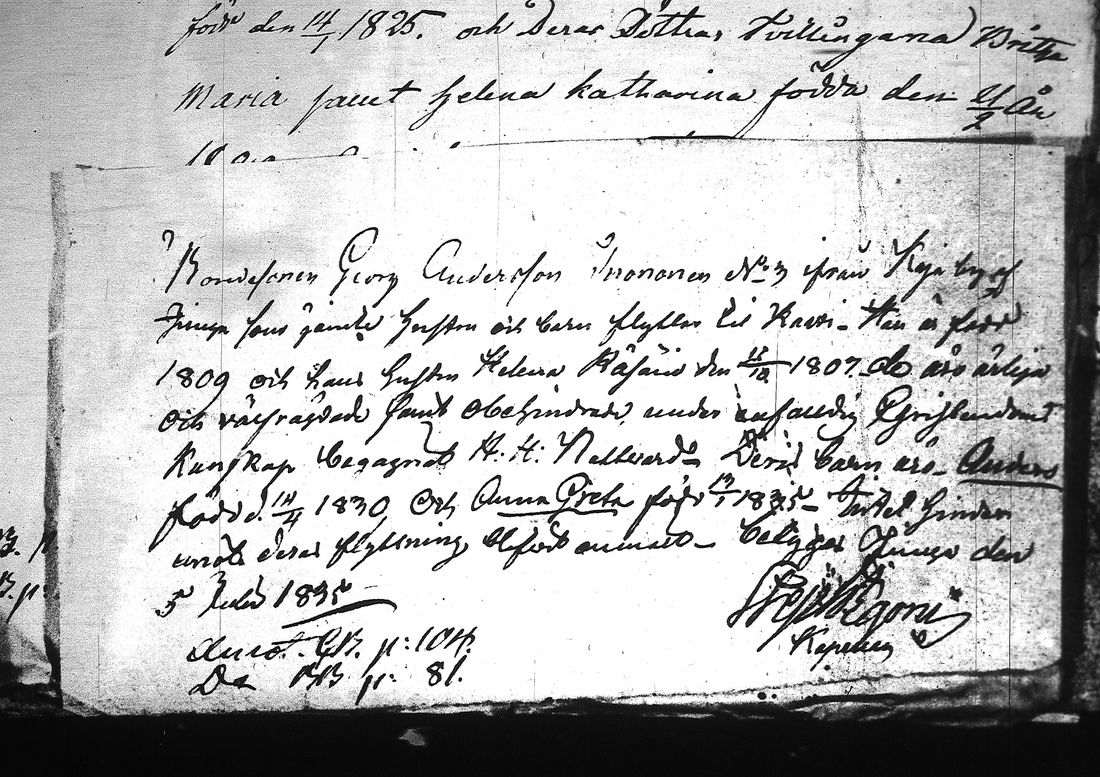 född den 14/1 1825. och Deras Döttrar Tvillingarna Britha
Maria samt Helena Katharina födda den 21/2 År
Bondesonen Georg Andersson Immonen No 3 ifrån Koja by af
Junga som jämte hustru och barn flyttar til Kavi - Han är född
1809 och hans hustru Helena Räsäin den 15/12 1807. de äro ärlige
och välfrägdade samt obehindrade, under enfaldig Christendoms
Kunskap begagnat H. H. Nattvard - Deras barn äro - Anders
född d. 14/4 1830, och Anna Greta född 13/1 1835 - Intet hinder
emot deras flyttning blefvit anmält - betygar Junga den
5 Julii 1835
Kapellan
Annot. GB. p: 104.
Do BB p: 81.